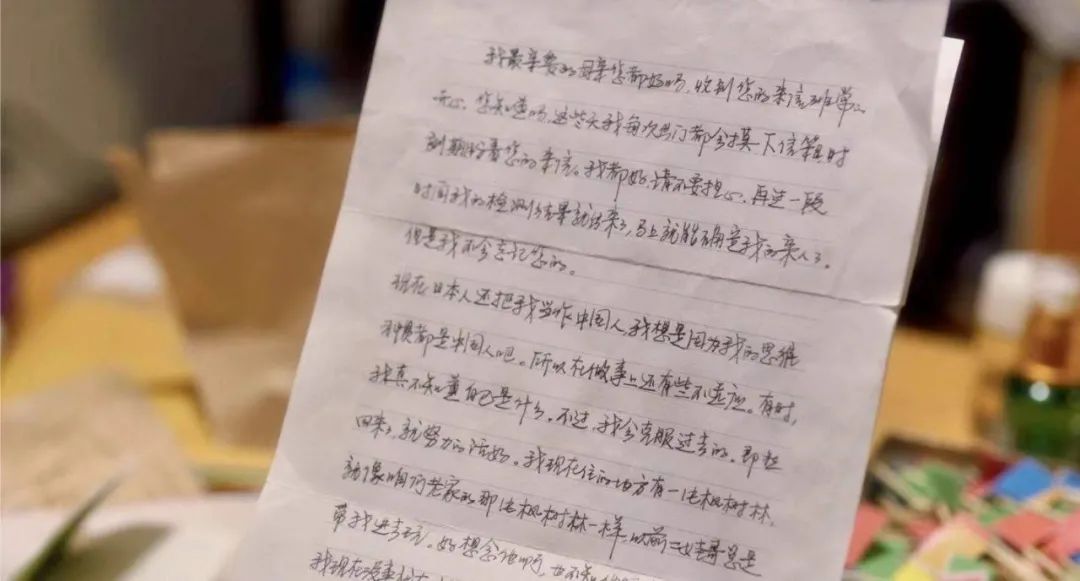 我最亲爱的母亲您都好吗，收到您的来信非常
开心，您知道吗，这些天我每次出门都会摸下信箱，时
刻期盼着您的来信。我都好，请不要担心，再过一段
时间我的检测结果就出来了，马上就能确定我的亲人了。
但是我不会忘记您的。
现在日本人还把我当作中国人，我想是因为我的思维
习惯都是中国人吧。所以在做事上还有些不适应。有时，
我真不知道自己是什么，不过，我会克服过去的。即然
回来了，就努力的活好。我现在住的地方有一片枫树林，
就像咱们老家的那片枫树林一样，以前二哥总是
带我进去玩。好想念他啊，也不知
我现在没事